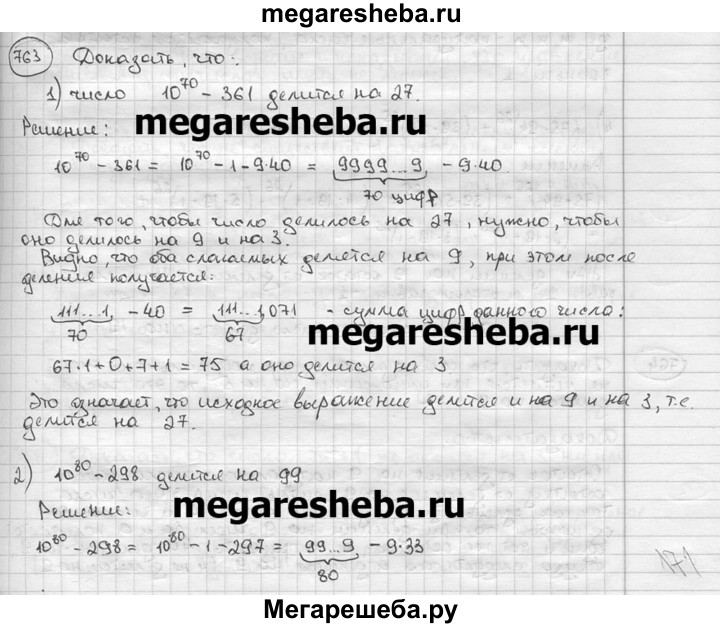 megaresheba.ru
763 Доказать, что:
1) число 10⁷⁰ - 361 делится на 27.
Решение: megaresheba.ru
10⁷⁰ - 361 = 10⁷⁰ - 1 - 9·40 = 9999...9 - 9·40
70 цифр
Для того, чтобы число делилось на 27, нужно, чтобы
оно делилось на 9 и на 3.
Видно, что оба слагаемых делятся на 9, при этом после
деления получается:
111...1 - 40 = 111...1 071 - сумма цифр данного числа:
70 67 megaresheba.ru
67·1+0+7+1 = 75 а оно делится на 3
Это означает, что исходное выражение делится и на 9 и на 3, т.е.
делится на 27.
2) 10⁸⁰ - 298 делится на 99
Решение: megaresheba.ru
10⁸⁰ - 298 = 10⁸⁰ - 1 - 297 = 99...9 - 9·33
80
171
Мегарешеба.ру